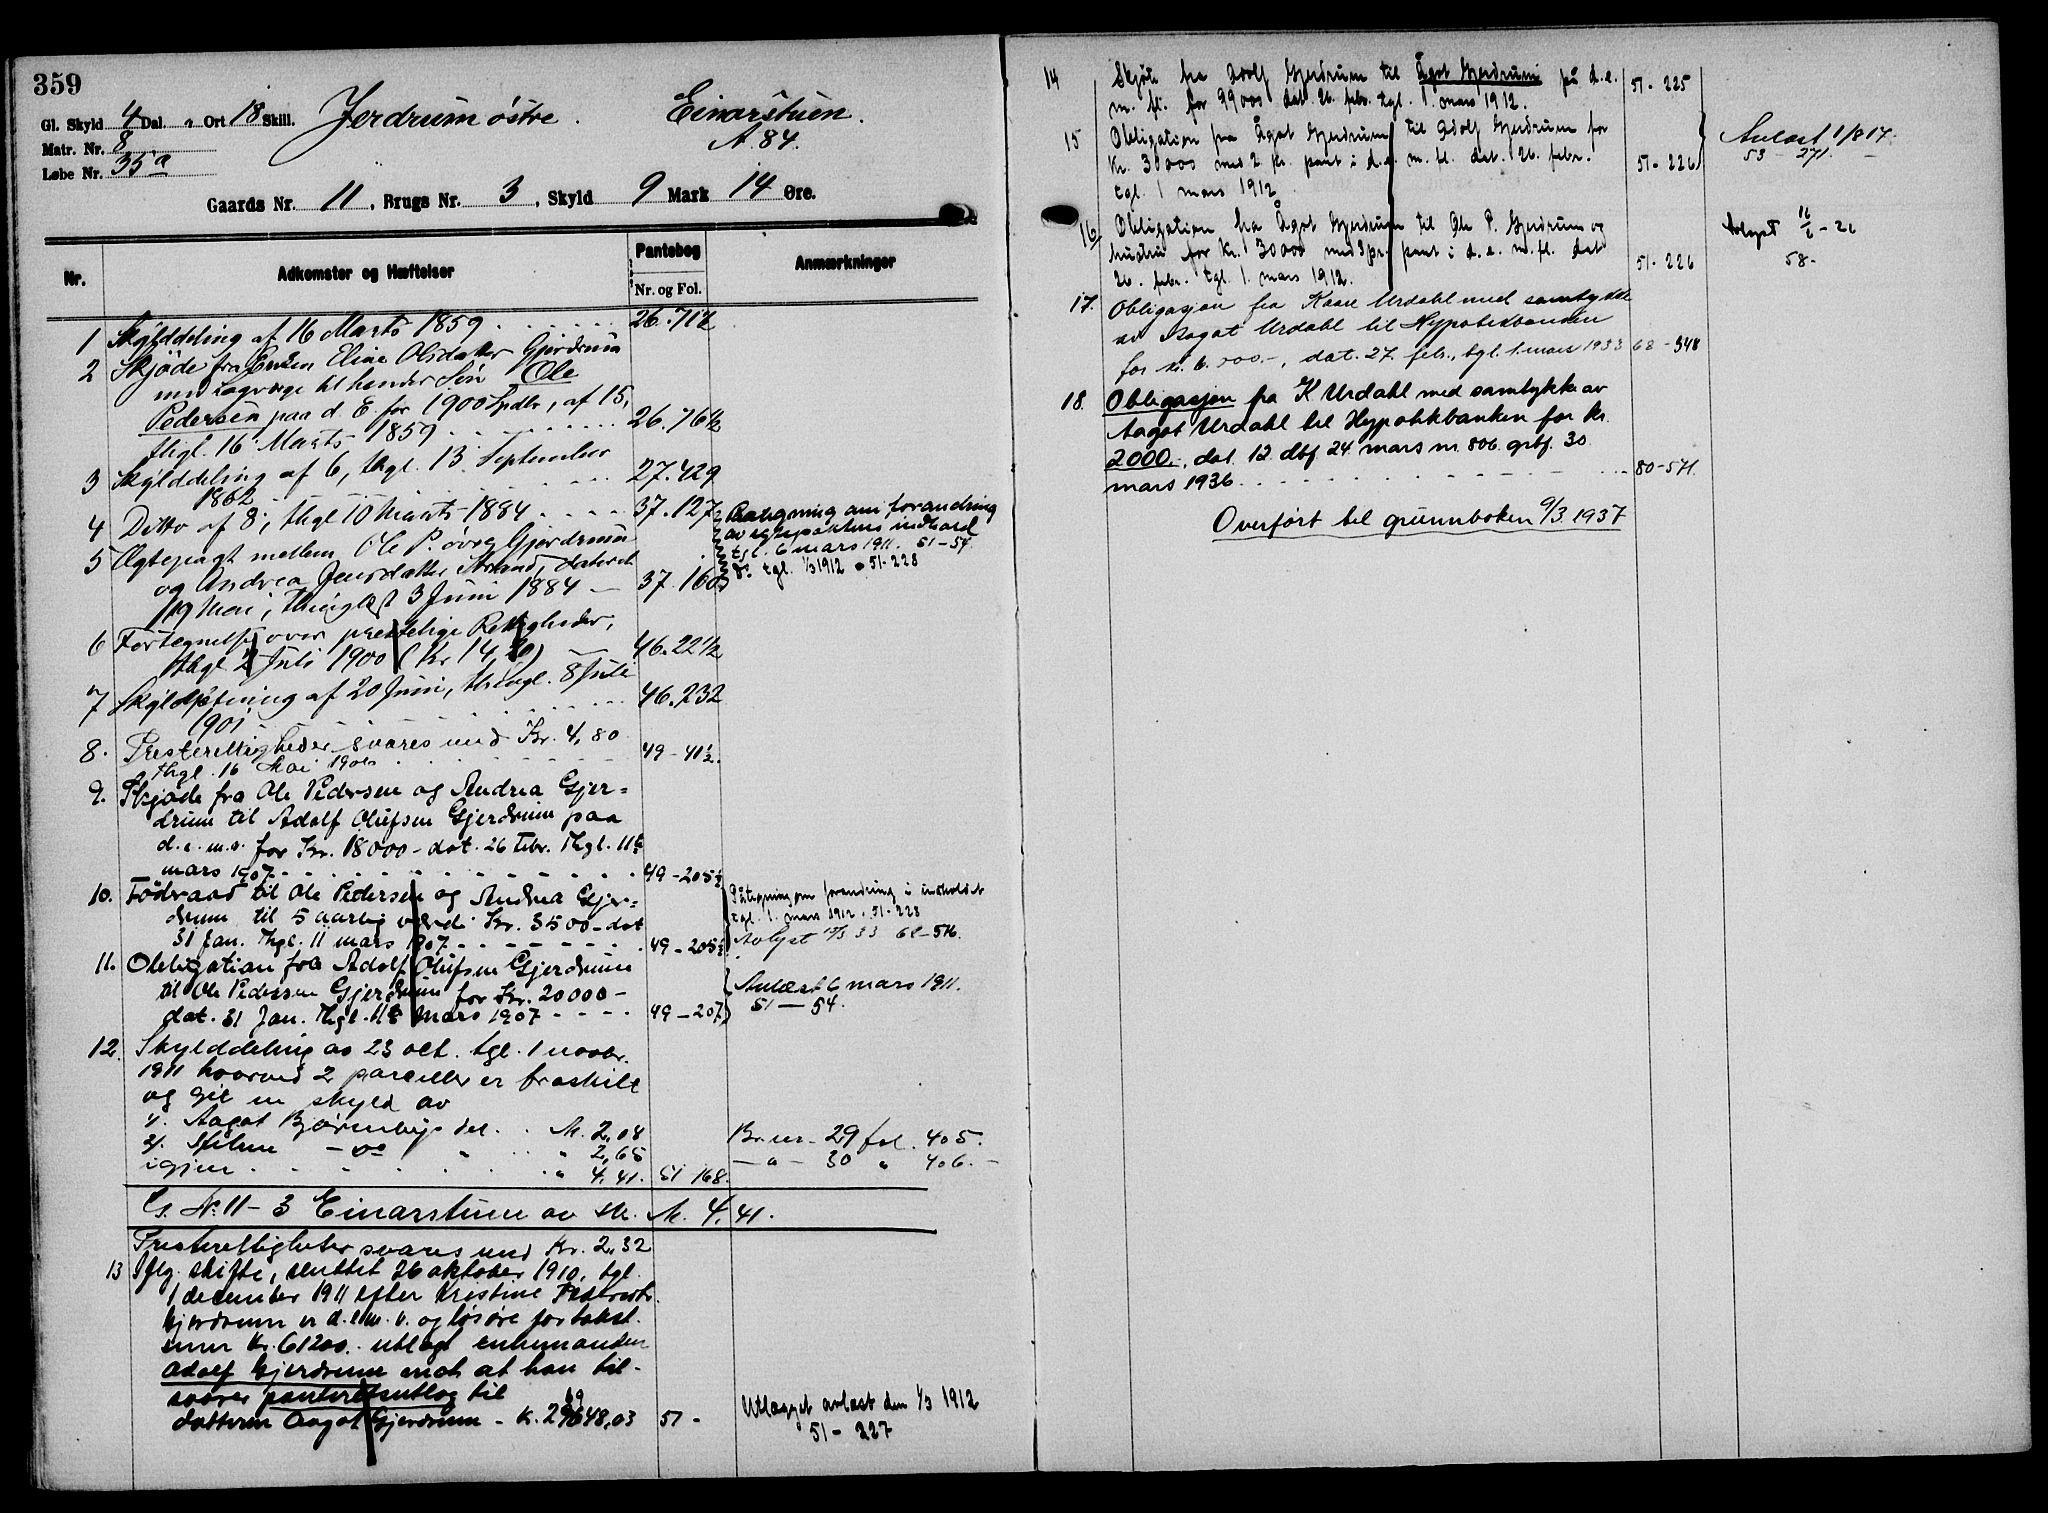 359
Gl. Skyld 4 Dal. " Ort 18 Skill. Jerdrum østre. Einarstuen.
Matr. Nr. 8 A. 84.
Løbe Nr. 35 a
Gaards Nr. 11, Brugs Nr. 3, Skyld 9 Mark 14 Øre.
Nr. Adkomster og Hæftelser Pantebog Nr. og Fol. Anmærkninger
1 Skylddeling af 16 Marts 1859 26.71½
2 Skjöde fra Enken Eline Olsdatter Gjerdrum
med Lagværge til hendes Sön Ole
Pedersen paa d. E. for 1900 Spdlr, af 15,
thgl. 16 Marts 1859 26.76½
3 Skylddeling af 6, thgl. 13 September
1862 27.429
4 Ditto af 8, thgl 10 Marts 1884 37.127
5 Ægtepagt mellem Ole P. Gjerdrum
og Andrea Jensdatter Strand, dateret
19 Mai, thinglæst 3 Juni 1884 37.160
Paategning om forandring
av egtepaktens indhold
tgl. 6 mars 1911. 51-54
Do. tgl. 1/3 1912 51-228
6 Fortegnelse over præstelige Rettigheder,
thgl 2 Juli 1900 (Kr 14,20) 46.22½
7 Skyldsætning af 20 Juni, thingl. 8 Juli
1901 46.232
8. Presterettigheder svares med Kr. 4,80
thgl. 16 Mai 49-41½.
9. Skjøde fra Ole Pedersen og Andrea Gjer-
drum til Adolf Olufsen Gjerdrum paa
d.e.m.v. for Kr. 18000- dat. 26 Febr. Thgl. 11te
mars 1907 49-205½
10. Födraad til Ole Pedersen og Andrea Gjer-
drum til 5 aarlig værdi Kr. 3500- dat
31 Jan. Thgl. 11 mars 1907 49-205½
Påtegning om forandring i indholdet
tgl. 1. mars 1912. 51-228
Avlyst 33 68-516.
11. Obligation fra Adolf Olufsen Gjerdrum
til Ole Pedersen Gjerdrum for Kr. 20000-
dat. 31 Jan. Thgl. 11te Mars 1907 49-207
Avlæst 6 mars 1911.
51-54.
12. Skylddeling av 23 okt. tgl. 1 novbr.
1911 hvorved 2 parceller er fraskilt
og git en skyld av
1/. Aagot Bjørnebys del. M. 2,08 Br. nr. 29 fol. 405.
2/. Stiline - do " 2,65 - " - 30 " 406.-
igjen " 4,41. 51 168.
G. No. 11-3 Einarstuen av sk. M. 4,41.
Presterettigheter svares med Kr. 2,32
13 Iflg. skifte, sluttet 26 oktober 1910, tgl.
1 december 1911 efter Kristine
Gjerdrum er d.e.m.v. og løsøre for takst
sum kr. 61200.- utlagt enkemanden
Adolf Gjerdrum mot at han til-
svarer panteretsutlæg til
datteren Aagot Gjerdrum - k. 29648,03 51-
Utlægget avlæst den 1/3 1912
51-227
14 Skjøte fra Adolf Gjerdrum til Ågot Gjerdrum på d.e.
m. fl. for 99000 dat. 26. febr. tgl. 1. mars 1912. 51-225
15 Obligation fra Ågot Gjerdrum til Adolf Gjerdrum for
kr. 30000 med 2 pr. pant i d.e. m. fl. dat. 26. febr.
tgl. 1 mars 1912. 51-226
Avlæst 1/8 17.
53-271.
16 Obligation fra Ågot Gjerdrum til Ole P. Gjerdrum og
hustru for kr. 30000 med 3 pr. pant i d.e. m. fl. dat
26. febr. tgl. 1. mars 1912. 51-226
Avlyst 16/6-26
58-
17. Obligasjon fra Kaare Urdahl med samtykke
av Aagot Urdahl til Hypotekbanken
for kr. 6.000.-, dat. 27. feb., tgl. 1. mars 1933 68-348
18. Obligasjon fra K Urdahl med samtykke av
Aagot Urdahl til Hypotekbanken for kr.
2000.-, dat. 12. dbf 24 mars nr. 806. grbf. 30
mars 1936 80-571.
Overført til grunnboken 9/3.1937